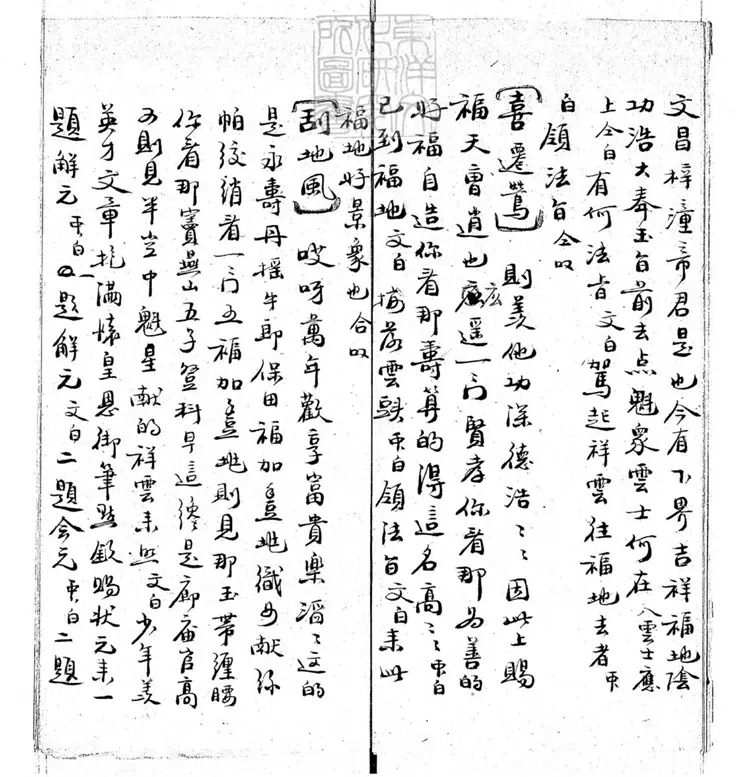 文昌梓潼帝君是也今有下界吉祥福地陰
功浩大奉玉旨前去点魁眾雲士何在八雲士應
上今白有何法旨文白駕起祥雲往福地去者中
白領法旨合以
〔喜遷鶯〕則羨他功深德浩〻因此上賜
福天曹逍也広遥一门賢孝你看那為善的
好福自造你看那壽算的得這名高〻中白
已到福地文白按落雲頭中白領法旨文白来此
福地好景象也合以
〔刮地風〕哎呀萬年歡享富貴樂滔〻这的
是永壽丹摇牛郎保田福加喜地織女献綵
帕绞绡看一门五福加喜地則見那玉帶纏腰
你看那竇燕山五子登科早這纔是廊廟官高
又則見半空中魁星献的祥雲未照文白少年美
英才文章抱滿懷皇恩御筆點欽賜狀元来一
題解元中白一題解元文白二題会元中白二題